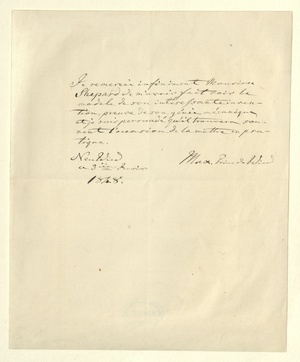 Je remercie infiniment Monsieur
Shepard de m'avoir fait voir le
modèle de son intéressante inven-
tion, preuve de son génie mécanique
et je suis persuadé qu'il trouvera sou-
vent l'occasion de la mettre en pra-
tique.
Neu Wied
ce 3
1848.
Max. Prince de Wied